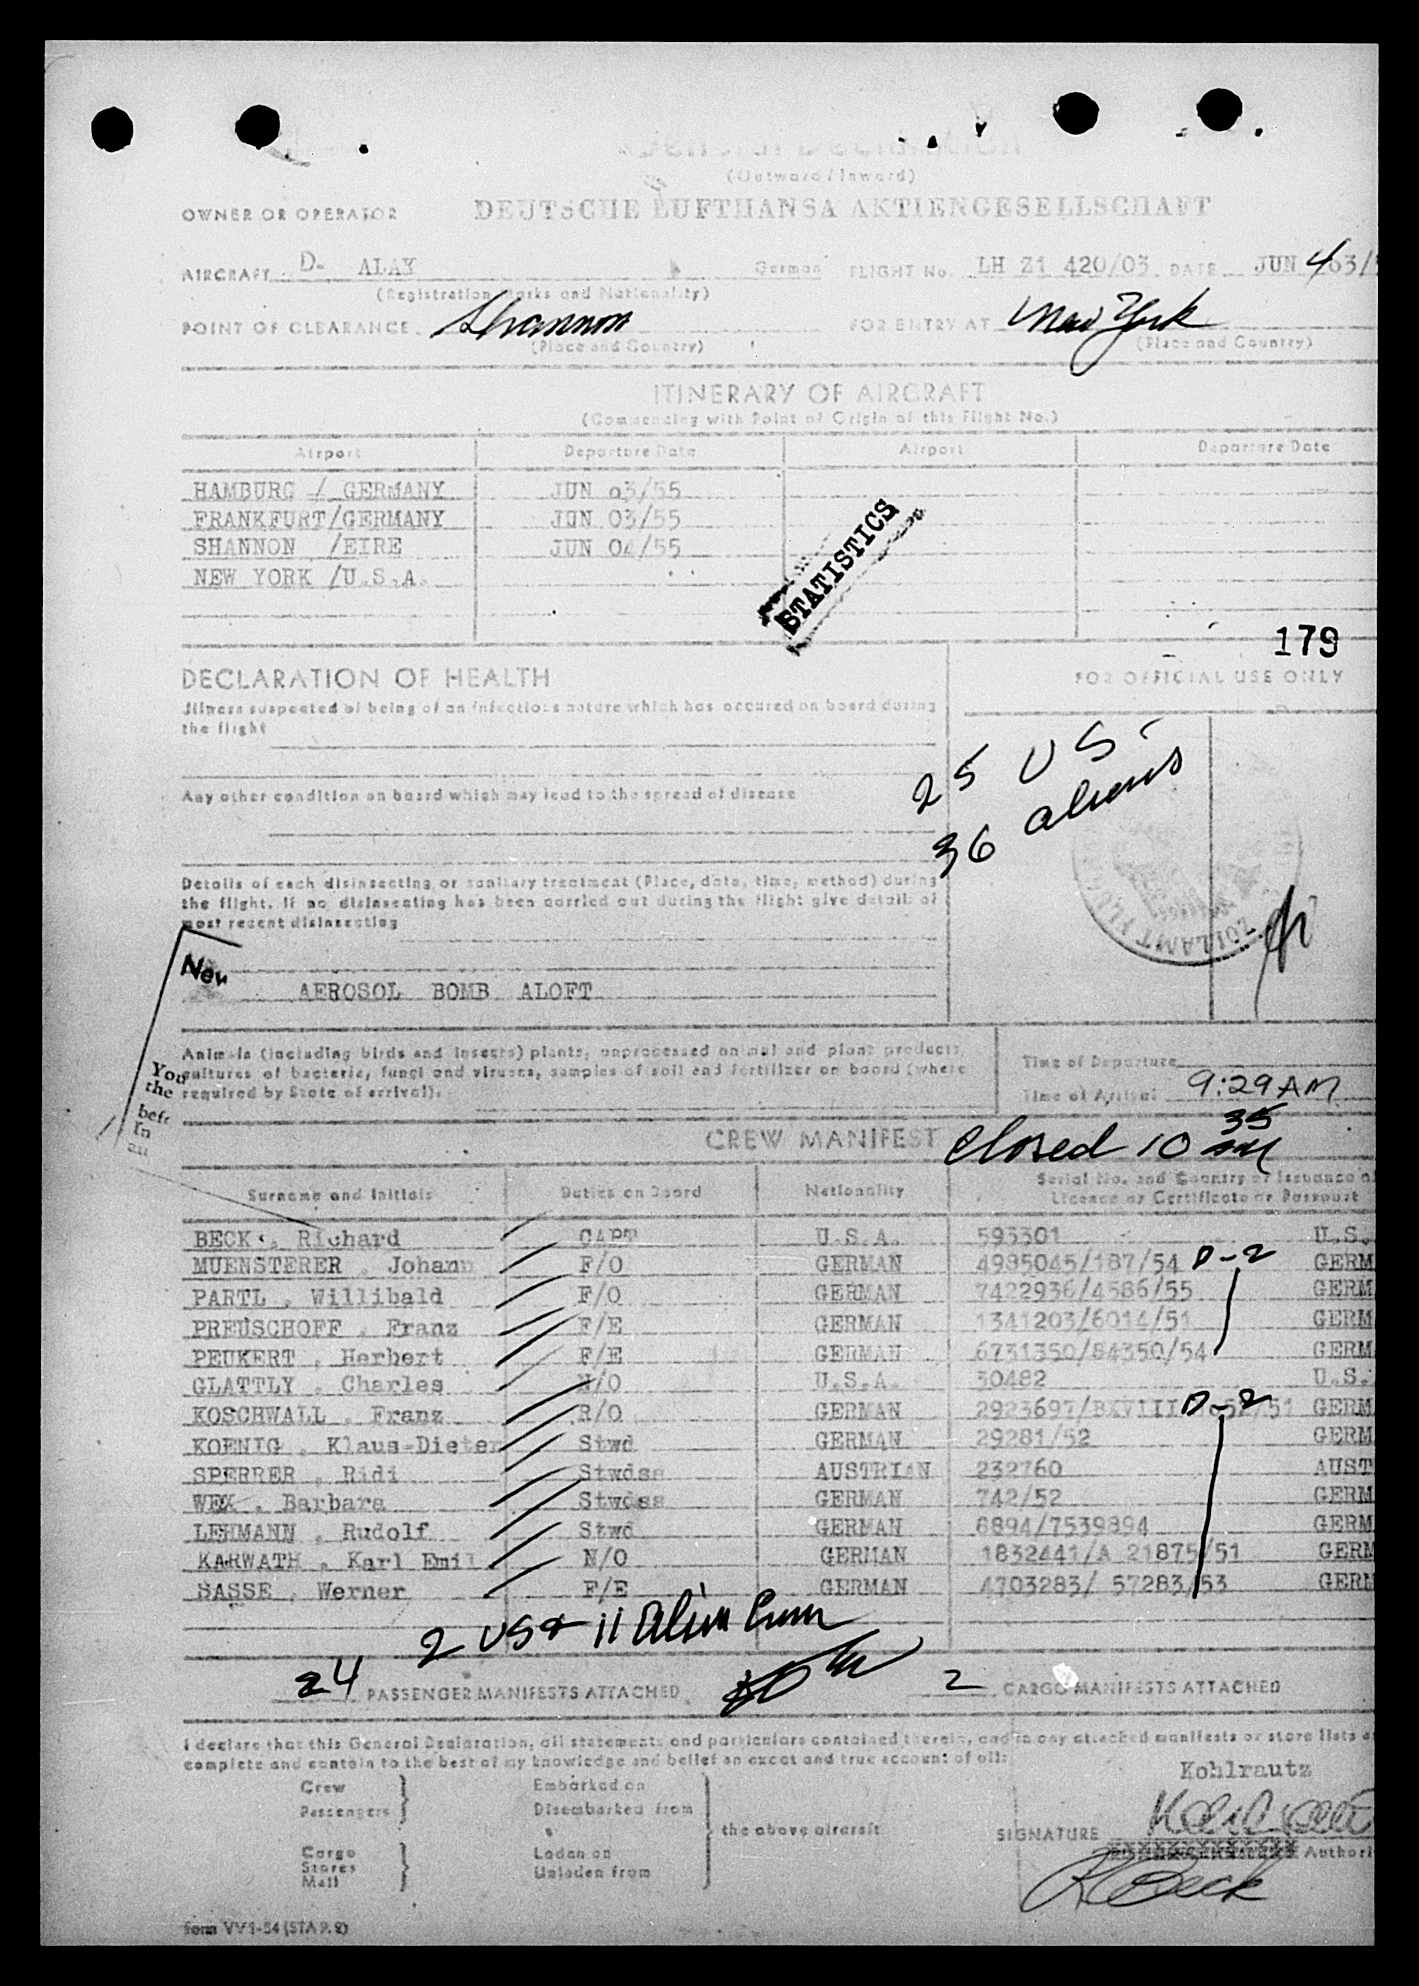 General Declaration
(Outward / Inward)
OWNER OR OPERATOR DEUTSCHE LUFTHANSA AKTIENGESELLSCHAFT
AIRCRAFT D- ALAK German FLIGHT No. LH Z1 420/03 DATE JUN 4
(Registration Marks and Nationality)
POINT OF CLEARANCE Shannon FOR ENTRY AT New York
(Place and Country) (Place and Country)
ITINERARY OF AIRCRAFT
(Commencing with Point of Origin of this Flight No.)
Airport Departure Date Airport Departure Date
HAMBURG / GERMANY JUN 03/55
FRANKFURT/GERMANY JUN 03/55
SHANNON /EIRE JUN 04/55
NEW YORK /U.S.A.
STATISTICS
179
DECLARATION OF HEALTH FOR OFFICIAL USE ONLY
Illness suspected of being of an infectious nature which has occured on board during
the flight
25 US
Any other condition on board which may lead to the spread of disease
36 aliens
Details of each disinsecting or sanitary treatment (Place, date, time, method) during
the flight. If no disinsecting has been carried out during the flight give details of
most recent disinsecting
ZOLLAMT
New
AEROSOL BOMB ALOFT
Animals (including birds and insects) plants, unprocessed animal and plant products,
cultures of bacteria, fungi and viruses, samples of soil and fertilizer on board (where
required by State of arrival).
You
the
befc
In
an
Time of Departure
Time of Arrival 9:29 AM
CREW MANIFEST Closed 10 35 AM
Surname and Initials Duties on Board Nationality Serial No. and Country of Issuance of
Licence or Certificate or Passport
BECK , Richard CAPT U.S.A. 593301 U.S.
MUENSTERER , Johann F/O GERMAN 4985045/187/54 D-2 GERM
PARTL , Willibald F/O GERMAN 7422936/4586/55 GERM
PREUSCHOFF , Franz F/E GERMAN 1341203/6014/51 GERM
PEUKERT , Herbert F/E GERMAN 6731350/84350/54 GERM
GLATTLY , Charles N/O U.S.A. 30482 U.S.
KOSCHWALL , Franz R/O GERMAN 2923697/BXVIII D-2 /51 GERM
KOENIG , Klaus-Dieter Stwd GERMAN 29281/52 GERM
SPERRER , Ridi Stwdss AUSTRIAN 232760 AUST
WEX , Barbara Stwdss GERMAN 742/52 GERM
LEHMANN , Rudolf Stwd GERMAN 8894/7539894 GERM
KARWATH , Karl Emil N/O GERMAN 1832441/A 21875/51 GERM
SASSE , Werner F/E GERMAN 4703283/ 57283/53 GERM
2 US + 11 Alien Crew
24 PASSENGER MANIFESTS ATTACHED 2 CARGO MANIFESTS ATTACHED
I declare that this General Declaration, all statements and particulars contained therein, and in any attached manifests or store lists a
complete and contain to the best of my knowledge and belief an exact and true account of all:
Kohlrautz
Crew Embarked on
Passengers Disembarked from
the above aircraft
SIGNATURE
Cargo Laden on
Authori
Stores Unladen from
Mail
R Beck
Form VV1-54 (STA 9.2)